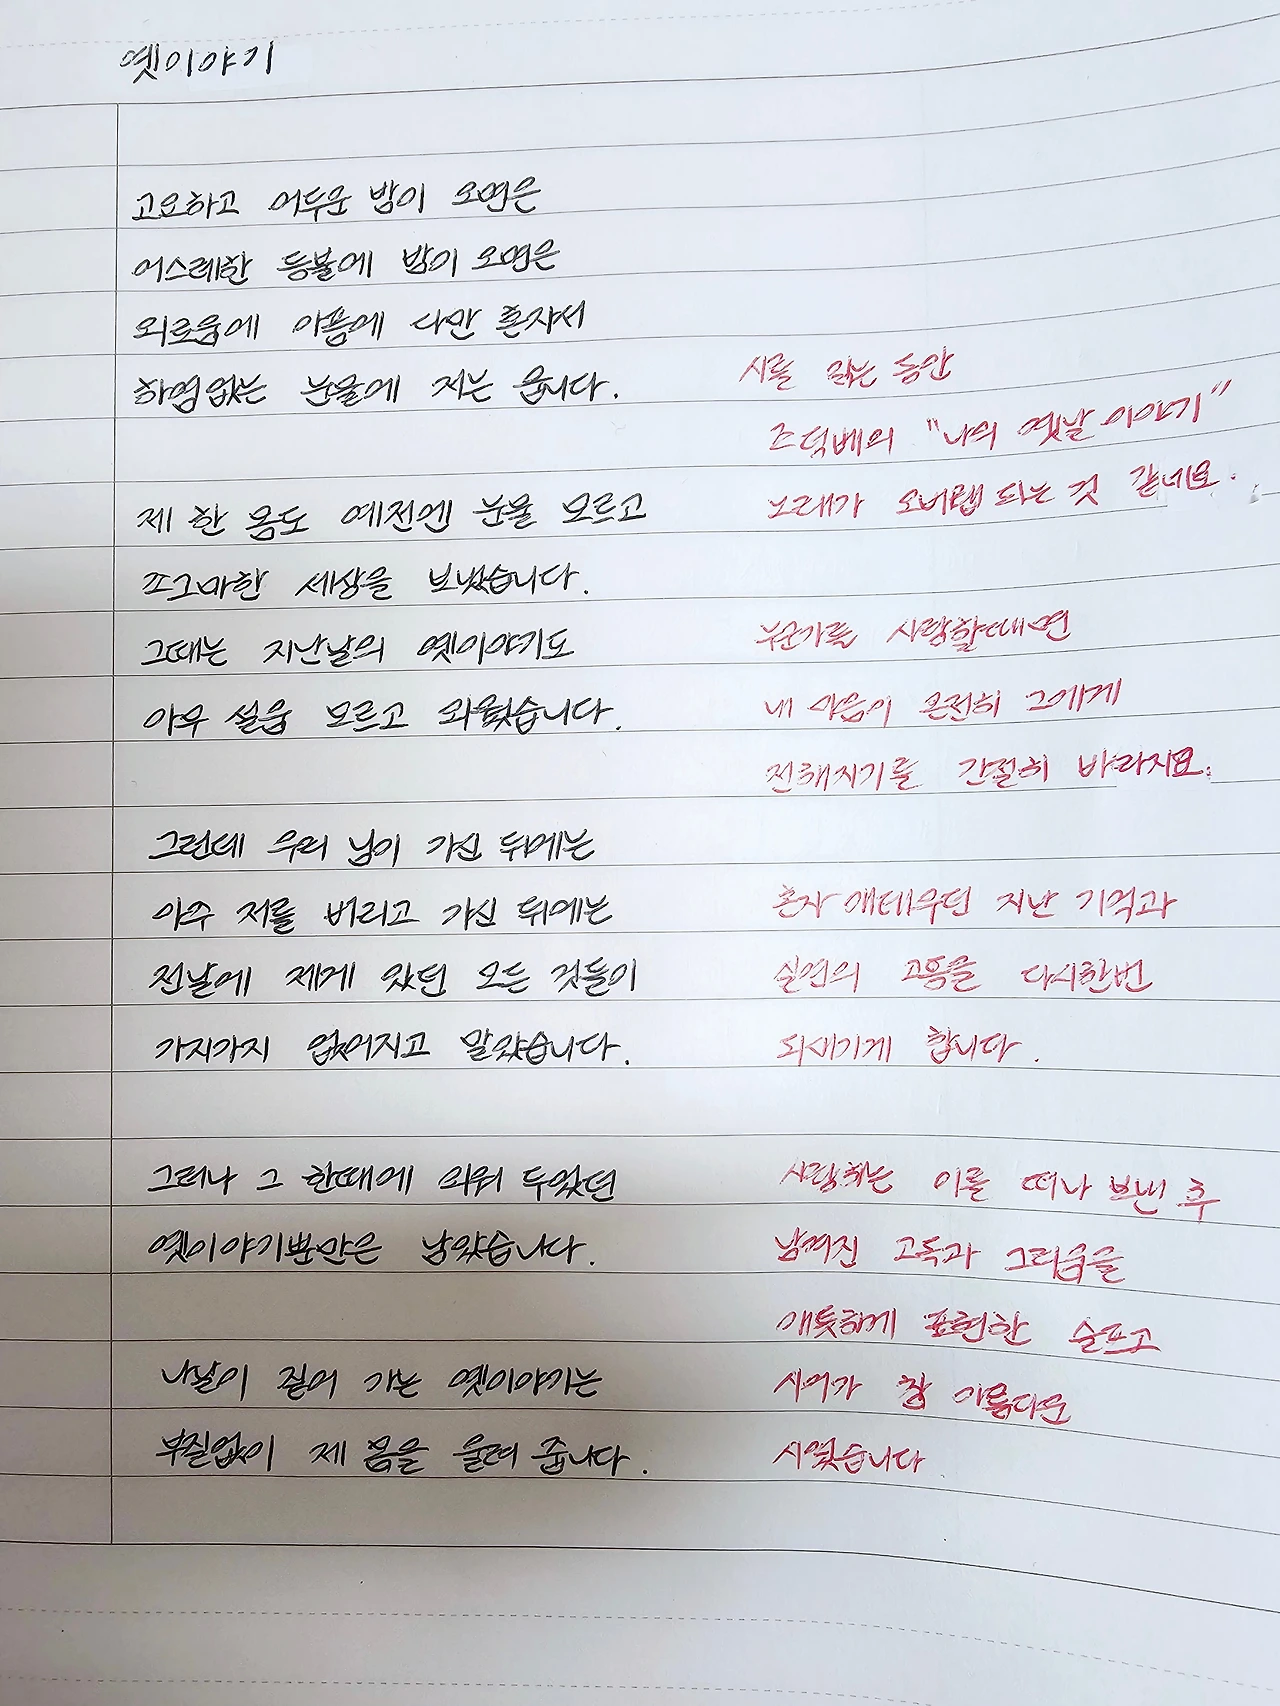 옛이야기
고요하고 어두운 밤이 오면은
어스레한 등불에 밤이 오면은
외로움에 아픔에 다만 혼자서
하염없는 눈물에 저는 웁니다.
제 한 몸도 예전엔 눈물 모르고
조그마한 세상을 보냈습니다.
그때는 지난날의 옛이야기도
아무 설움 모르고 외웠습니다.
그런데 우리 님이 가신 뒤에는
아주 저를 버리고 가신 뒤에는
전날에 제게 있던 모든 것들이
가지가지 없어지고 말았습니다.
그러나 그 한때에 외워 두었던
옛이야기뿐만은 남았습니다.
나날이 짙어 가는 옛이야기는
부질없이 제 몸을 울려 줍니다.
시를 읽는 동안
조덕배의 "나의 옛날 이야기"
노래가 오버랩 되는 것 같네요.
누군가를 사랑할때면
내 마음이 온전히 그에게
전해지기를 간절히 바라지요.
혼자 애태우던 지난 기억과
실연의 고통을 다시한번
되새기게 합니다.
사랑하는 이를 떠나 보낸 후
남겨진 고독과 그리움을
애틋하게 표현한 슬프고
시어가 참 아름다운
시였습니다